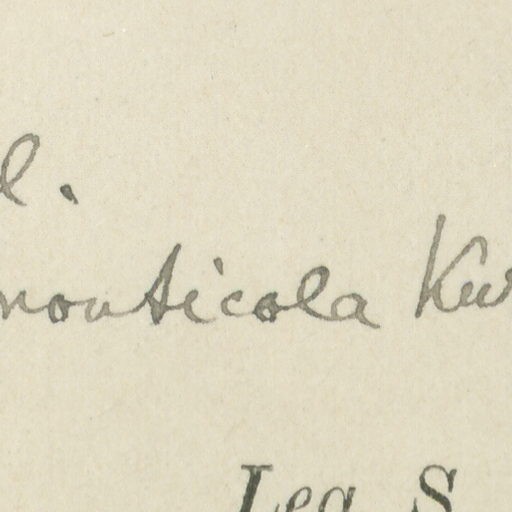 l.
monticola Kur
Leg. S.